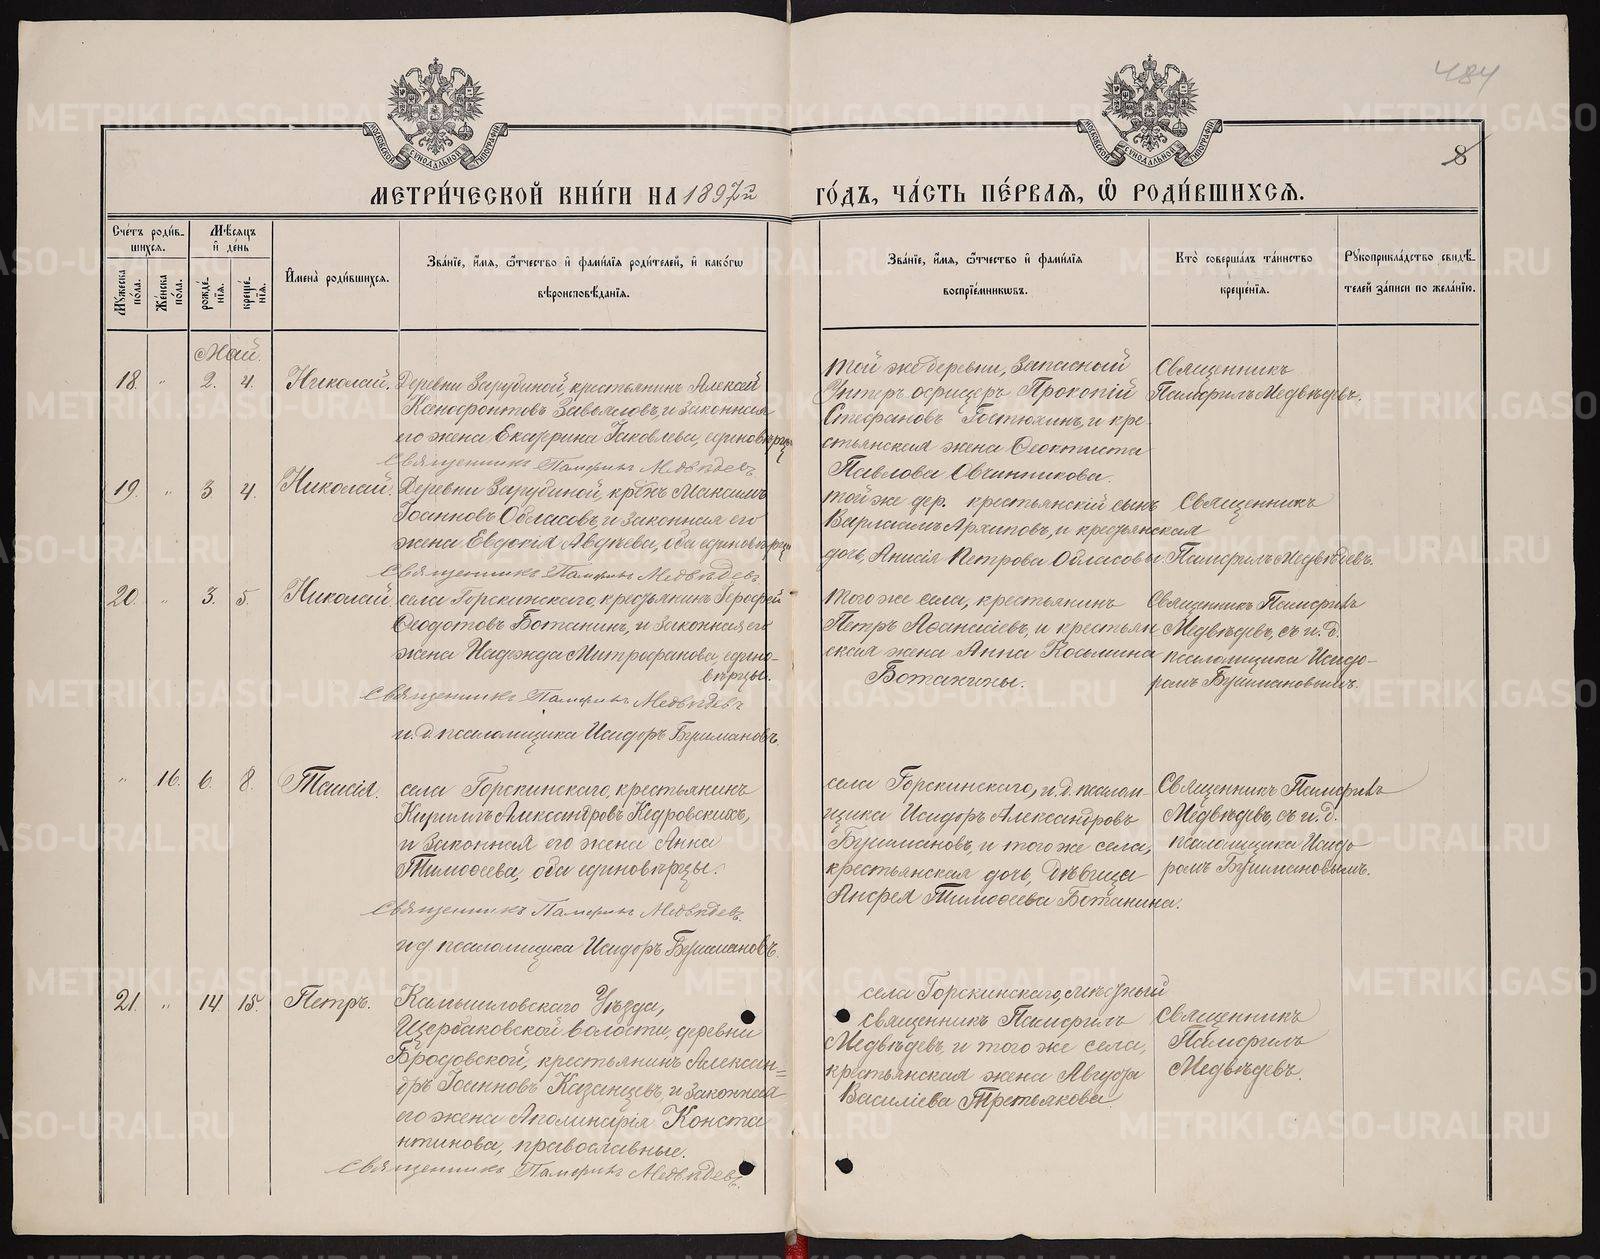 484
8
МОСКОВСКОЙ СѴНОДАЛЬНОЙ ТИПОГРАФІИ
МОСКОВСКОЙ СѴНОДАЛЬНОЙ ТИПОГРАФІИ
МЕТРИ́ЧЕСКОЙ КНИ́ГИ НА 1897й
ГО́ДЪ, ЧА́СТЬ ПЕ́РВАЯ, Ѡ҆ РОДИ́ВШИХСЯ.
Сче́тъ роди́в-
шихся.
Мꙋ́жеска по́ла.
Же́нска по́ла.
Мѣ́сяцъ
и҆ де́нь
рожде́-
нїя.
креще́-
нїя.
И҆мена̀ роди́вшихся.
Зва́нїе, и҆́мя, ѻ҆́тчество и҆ фами́лїя роди́телей, и҆ како́гѡ
вѣроисповѣ́данїя.
Зва́нїе, и҆́мя, ѻ҆́тчество и҆ фами́лїя
воспрїе́мникѡвъ.
Кто̀ соверша́лъ та́инство
креще́нїя.
Рꙋкоприкла́дство свидѣ́-
телей за́писи по жела́нїю.
Май.
18. " 2. 4. Николай.
Деревни Зарубиной крестьянинъ Алексѣй
Ксенофонтовъ Завьяловъ, и законная
его жена Екатерина Іаковлева, единовѣрцы
Священникъ Памфилъ Медвѣдевъ
Той же деревни, Запасный
Унтеръ офицеръ Прокопій
Стефановъ Гостюхинъ, и кре-
стьянская жена Ѳеоктиста
Павлова Овчинникова.
Священникъ
Памфилъ Медвѣдевъ.
19. " 3 4. Николай.
Деревни Зарубиной, кр-нъ Максимъ
Іоанновъ Обласовъ, и законная его
жена Евдокія Авдѣева, оба единовѣрцы
Священникъ Памфилъ Медвѣдевъ.
Той же дер. крестьянскій сынъ
Варлаамъ Архиповъ, и крестьянская
дочь, Анисія Петрова Обласовы
Священникъ
Памфилъ Медвѣдевъ.
20. " 3. 5. Николай
села Горскинскаго, крестьянинъ Іероѳей
Ѳеодотовъ Ботанинъ, и законная его
жена Надежда Митрофанова, едино-
вѣрцы.
Священникъ Памфилъ Медвѣдевъ
и. д. псаломщика Исидоръ Бушмановъ.
Того же села, крестьянинъ
Петръ Аѳанасіевъ, и крестьян
екая жена Анна Косьмина
Ботанины.
Священникъ Памфилъ
Медвѣдевъ, съ и. д.
псаломщика Исидо-
ромъ Бушмановымъ.
" 16. 6. 8. Таисія.
села Горскинскаго, крестьянинъ
Кириллъ Александровъ Кедровскихъ,
и законная его жена Анна
Тимоѳеева, оба единовѣрцы.
Священникъ Памфилъ Медвѣдевъ.
и д. псаломщика Исидоръ Бушмановъ.
села Горскинскаго, и. д. псалом-
щика Исидоръ Александровъ
Бушмановъ, и того же села,
крестьянская дочь, дѣвица
Анфея Тимоѳеева Ботанина.
Священникъ Памфилъ
Медвѣдевъ, съ и. д.
псаломщика Исидо-
ромъ Бушмановымъ.
21. " 14 15. Петръ.
Камышловскаго Уѣзда,
Щербаковской волости, деревни
Бродовской, крестьянинъ Алексан-
дръ Іоанновъ Казанцевъ, и законная
его жена Аполинарія Конста
нтинова, православные.
Священникъ Памфилъ Медвѣдевъ.
села Горскинскаго, мѣстный
священникъ Памфилъ
Медвѣдевъ, и того же села,
крстьянская жена Августа
Василіева Третьякова.
Священникъ
Памфилъ
Медвѣдевъ.
METRIKI.GASO-URAL.RU